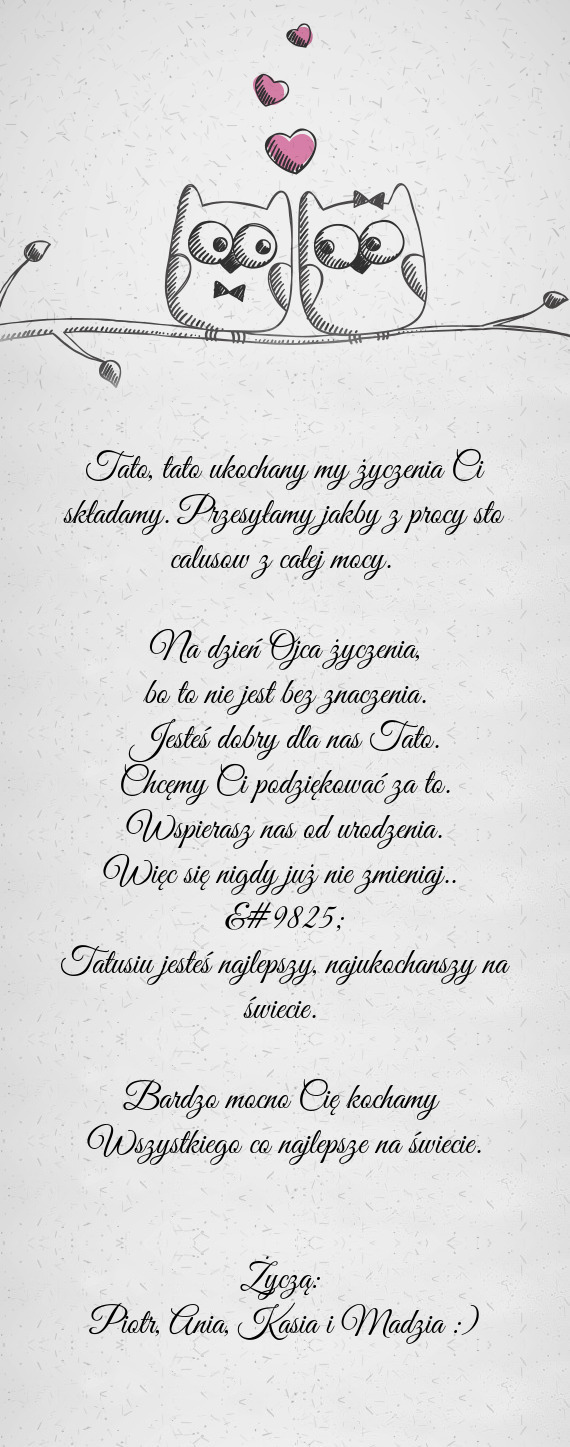 Tato, tato ukochany my życzenia Ci
składamy. Przesyłamy jakby z procy sto
calusow z całej mocy.
Na dzień Ojca życzenia,
bo to nie jest bez znaczenia.
Jesteś dobry dla nas Tato.
Chcęmy Ci podziękować za to.
Wspierasz nas od urodzenia.
Więc się nigdy już nie zmieniaj..
&#9825;
Tatusiu jesteś najlepszy, najukochanszy na
świecie.
Bardzo mocno Cię kochamy
Wszystkiego co najlepsze na świecie.
Życzą:
Piotr, Ania, Kasia i Madzia :)